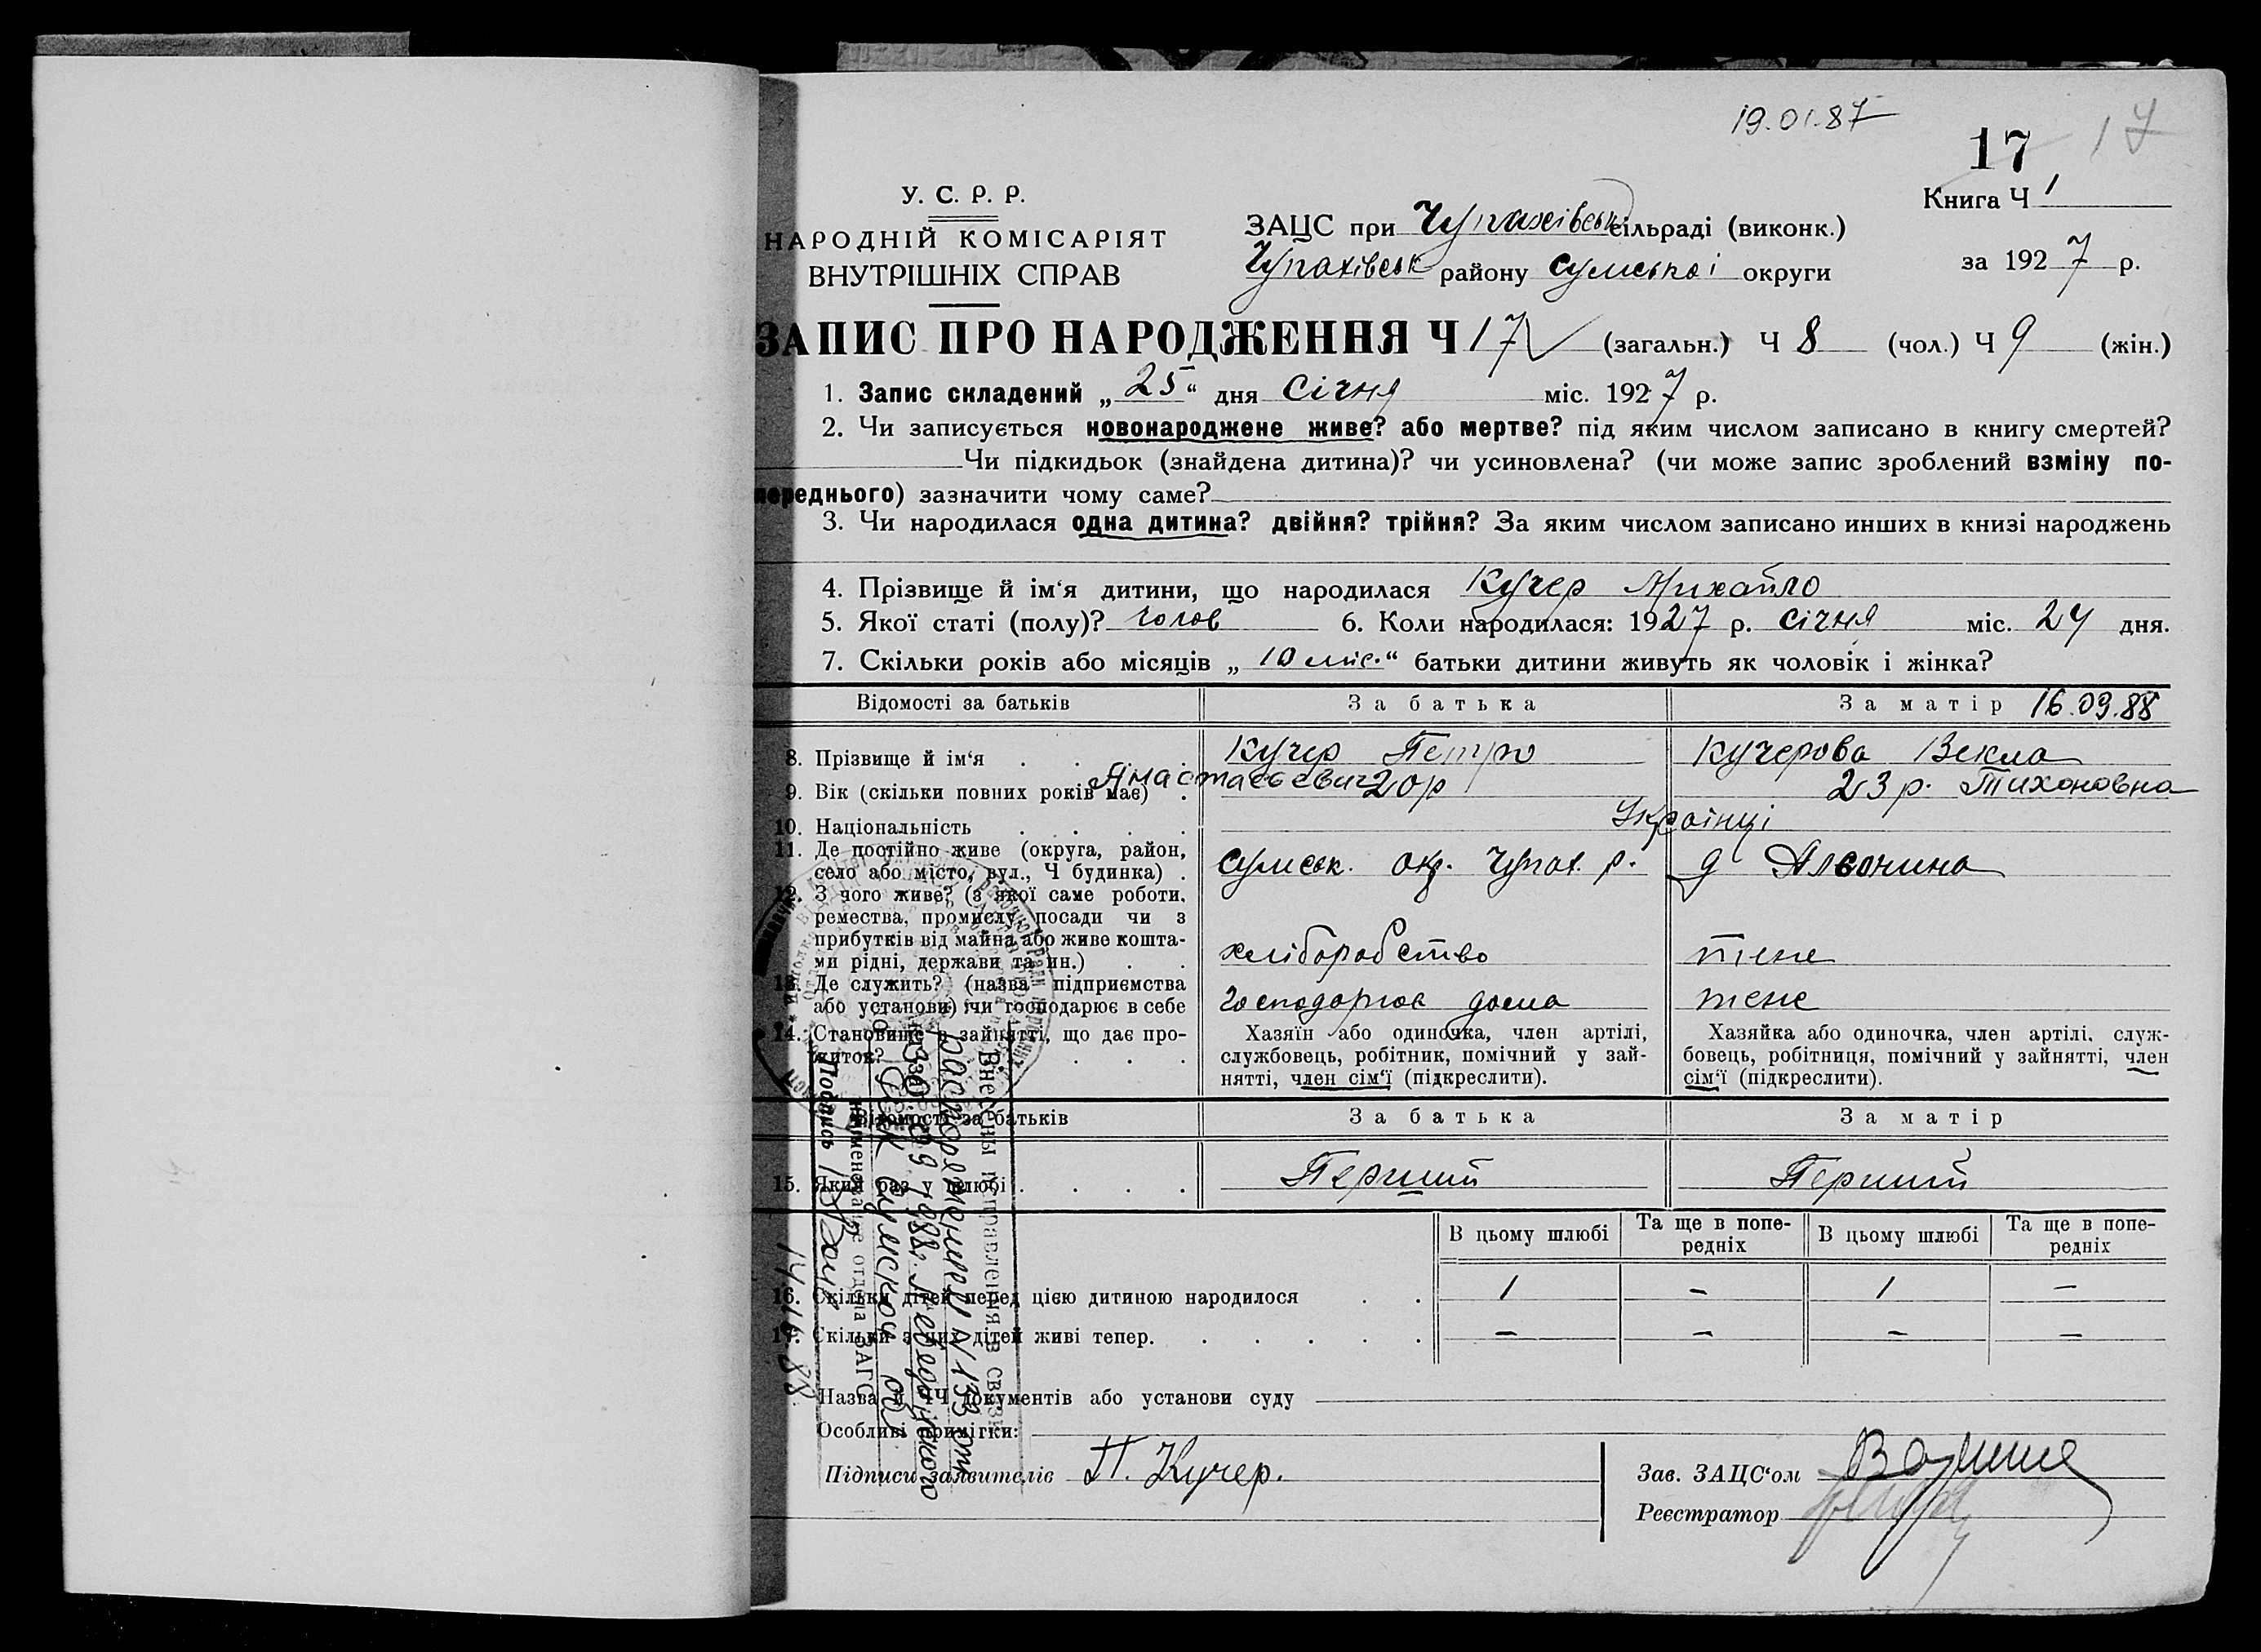 19.01.87
17 17
У. С. Р. Р.
Книга Ч 1
НАРОДНІЙ КОМІСАРІЯТ
ВНУТРІШНІХ СПРАВ
ЗАЦС при Чупахівськ сільраді (виконк.)
Чупахівськ району Сумської округи
за 1927 р.
ЗАПИС ПРО НАРОДЖЕННЯ Ч 17 (загальн.) Ч 8 (чол.) Ч 9 (жін.)
1. Запис складений „ 25 “ дня Січня міс. 1927 р.
2. Чи записується новонароджене живе? або мертве? під яким числом записано в книгу смертей?
Чи підкидьок (знайдена дитина)? чи усиновлена? (чи може запис зроблений взміну по-
переднього) зазначити чому саме?
3. Чи народилася одна дитина? двійня? трійня? За яким числом записано инших в книзі народжень
4. Прізвище й ім‘я дитини, що народилася Кучер Михайло
5. Якої статі (полу)? чолов 6. Коли народилася: 1927 р. січня міс. 24 дня.
7. Скільки років або місяців „ 10 міс. “ батьки дитини живуть як чоловік і жінка?
Відомості за батьків За батька За матір 16.09.88
8. Прізвище й ім‘я Кучер Петро Кучерова Векла
Анастасьевич Тихоновна
9. Вік (скільки повних років має) 20 р 23 р.
10. Національність Українці
11. Де постійно живе (округа, район,
село або місто, вул., Ч будинка) Сумськ. окр. Чупах. р. д
12. З чого живе? (з якої саме роботи,
ремества, промислу, посади чи з
прибутків від майна або живе кошта-
ми рідні, держави та ин.) хліборобство теж
13. Де служить? (назва підприємства
або установи) чи господарює в себе господарює дома теж
14. Становище в зайнятті, що дає про-
житок?
Хазяїн або одиночка, член артілі,
службовець, робітник, помічний у зай-
нятті, член сім‘ї (підкреслити).
Хазяйка або одиночка, член артілі, служ-
бовець, робітниця, помічний у зайнятті, член
сім‘ї (підкреслити).
Відомості за батьків За батька За матір
15. Який раз у шлюбі Перший Перший
В цьому шлюбі Та ще в попе-
редніх В цьому шлюбі Та ще в попе-
редніх
16. Скільки дітей перед цією дитиною народилося 1 – 1 –
17. Скільки з цих дітей живі тепер – – – –
Назва й Ч документів або установи суду
Особливі примітки:
Підписи заявителів П. Кучер.
Зав. ЗАЦС‘ом
Реєстратор
Внесены исправления в связи
распоряжением N 133 от
30.09 1988г. Лебединского
Сумской обл
наименование отдела ЗАГС
Подпись
14.11.88